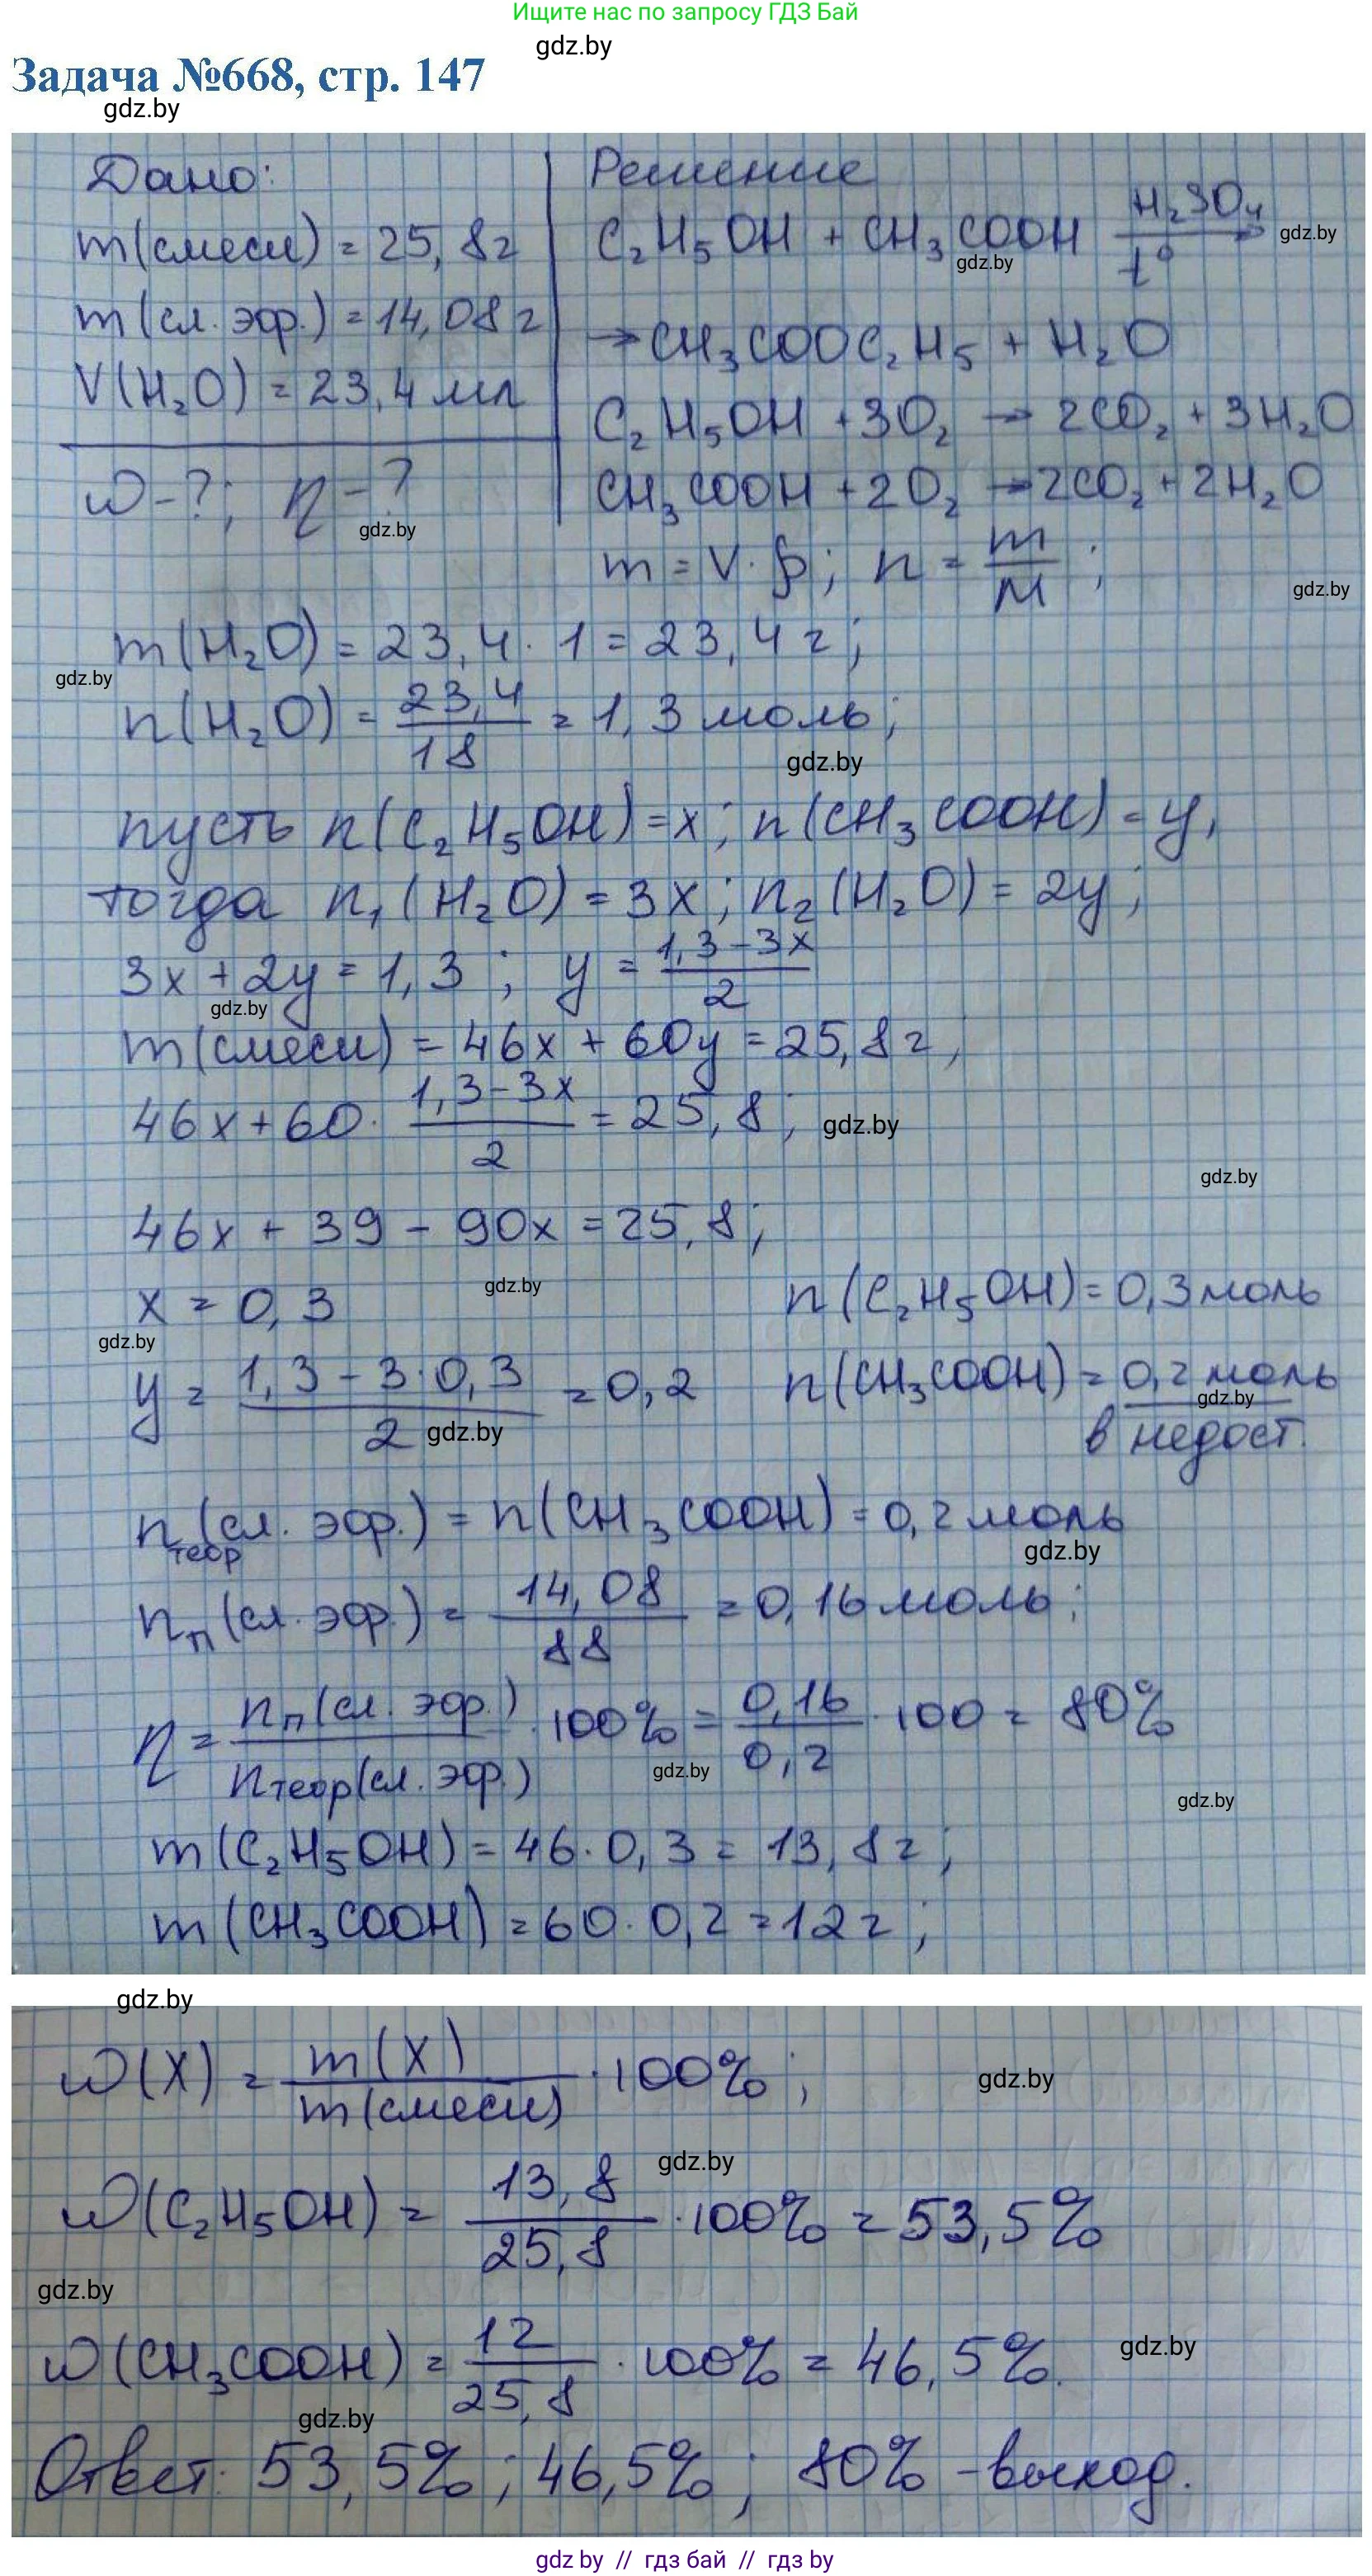 Ищите нас по запросу ГДЗ Бай
gdz.by
Задача №668, стр. 147
gdz.by
Дано:
m(смеси) = 25,8г
m(сл. эфр.) = 14,08г
V(H₂O) = 23,4 мл
ω-?; η-?
gdz.by
Решение
C₂H₅OH + CH₃COOH H₂SO₄ t° →
gdz.by
gdz.by
→ CH₃COOC₂H₅ + H₂O
C₂H₅OH + 3O₂ → 2CO₂ + 3H₂O
CH₃COOH + 2O₂ → 2CO₂ + 2H₂O
m = V·ρ; n = m/M;
gdz.by
m(H₂O) = 23,4 · 1 = 23,4 г;
gdz.by
n(H₂O) = 23,4/18 = 1,3 моль;
gdz.by
пусть n(C₂H₅OH) = x; n(CH₃COOH) = y,
тогда n₁(H₂O) = 3x; n₂(H₂O) = 2y;
3x + 2y = 1,3; y = (1,3-3x)/2
gdz.by
m(смеси) = 46x + 60y = 25,8 г,
46x + 60 · (1,3-3x)/2 = 25,8;
gdz.by
gdz.by
46x + 39 - 90x = 25,8;
gdz.by
x = 0,3 n(C₂H₅OH) = 0,3 моль
gdz.by
y = (1,3 - 3·0,3)/2 = 0,2 n(CH₃COOH) = 0,2 моль
gdz.by
gdz.by
в недост.
n теор (сл. эфр.) = n(CH₃COOH) = 0,2 моль
gdz.by
nп(сл. эфр.) = 14,08/88 = 0,16 моль;
η = nп(сл. эфр.)/nтеор(сл. эфр.) · 100% = 0,16/0,2 · 100 = 80%
gdz.by
gdz.by
m(C₂H₅OH) = 46·0,3 = 13,8 г;
m(CH₃COOH) = 60·0,2 = 12 г;
gdz.by
ω(X) = m(X)/m(смеси) · 100%;
gdz.by
gdz.by
ω(C₂H₅OH) = 13,8/25,8 · 100% = 53,5%
gdz.by
ω(CH₃COOH) = 12/25,8 · 100% = 46,5%.
gdz.by
gdz.by
Ответ: 53,5%; 46,5%; 80% - выход.
gdz by // гдз бай // гдз by